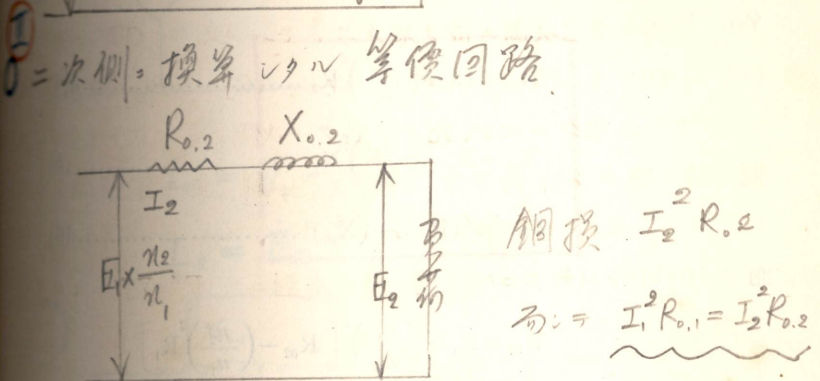 I
二次側ニ換算シタル等價回路.
R₀.₂ X₀.₂
I₂
E₁ × n₂/n₁
E₂
銅損 I₂² R₀.₂
而シテ I₁² R₀.₁ = I₂² R₀.₂